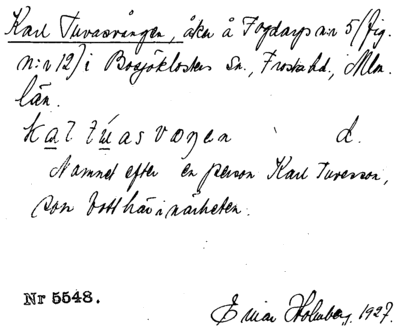 Karl Tuvasvången, åker å Fogdarps n:r 5 (fig.
n:r 12) i Bosjöklosters Sn., Frosta hd., Mlm.
län.
kal túas vaŋen d.
Namnet efter en person Karl Tuvesson,
som bott här i närheten.
Nr 5548.
Einar Holmberg. 1927.